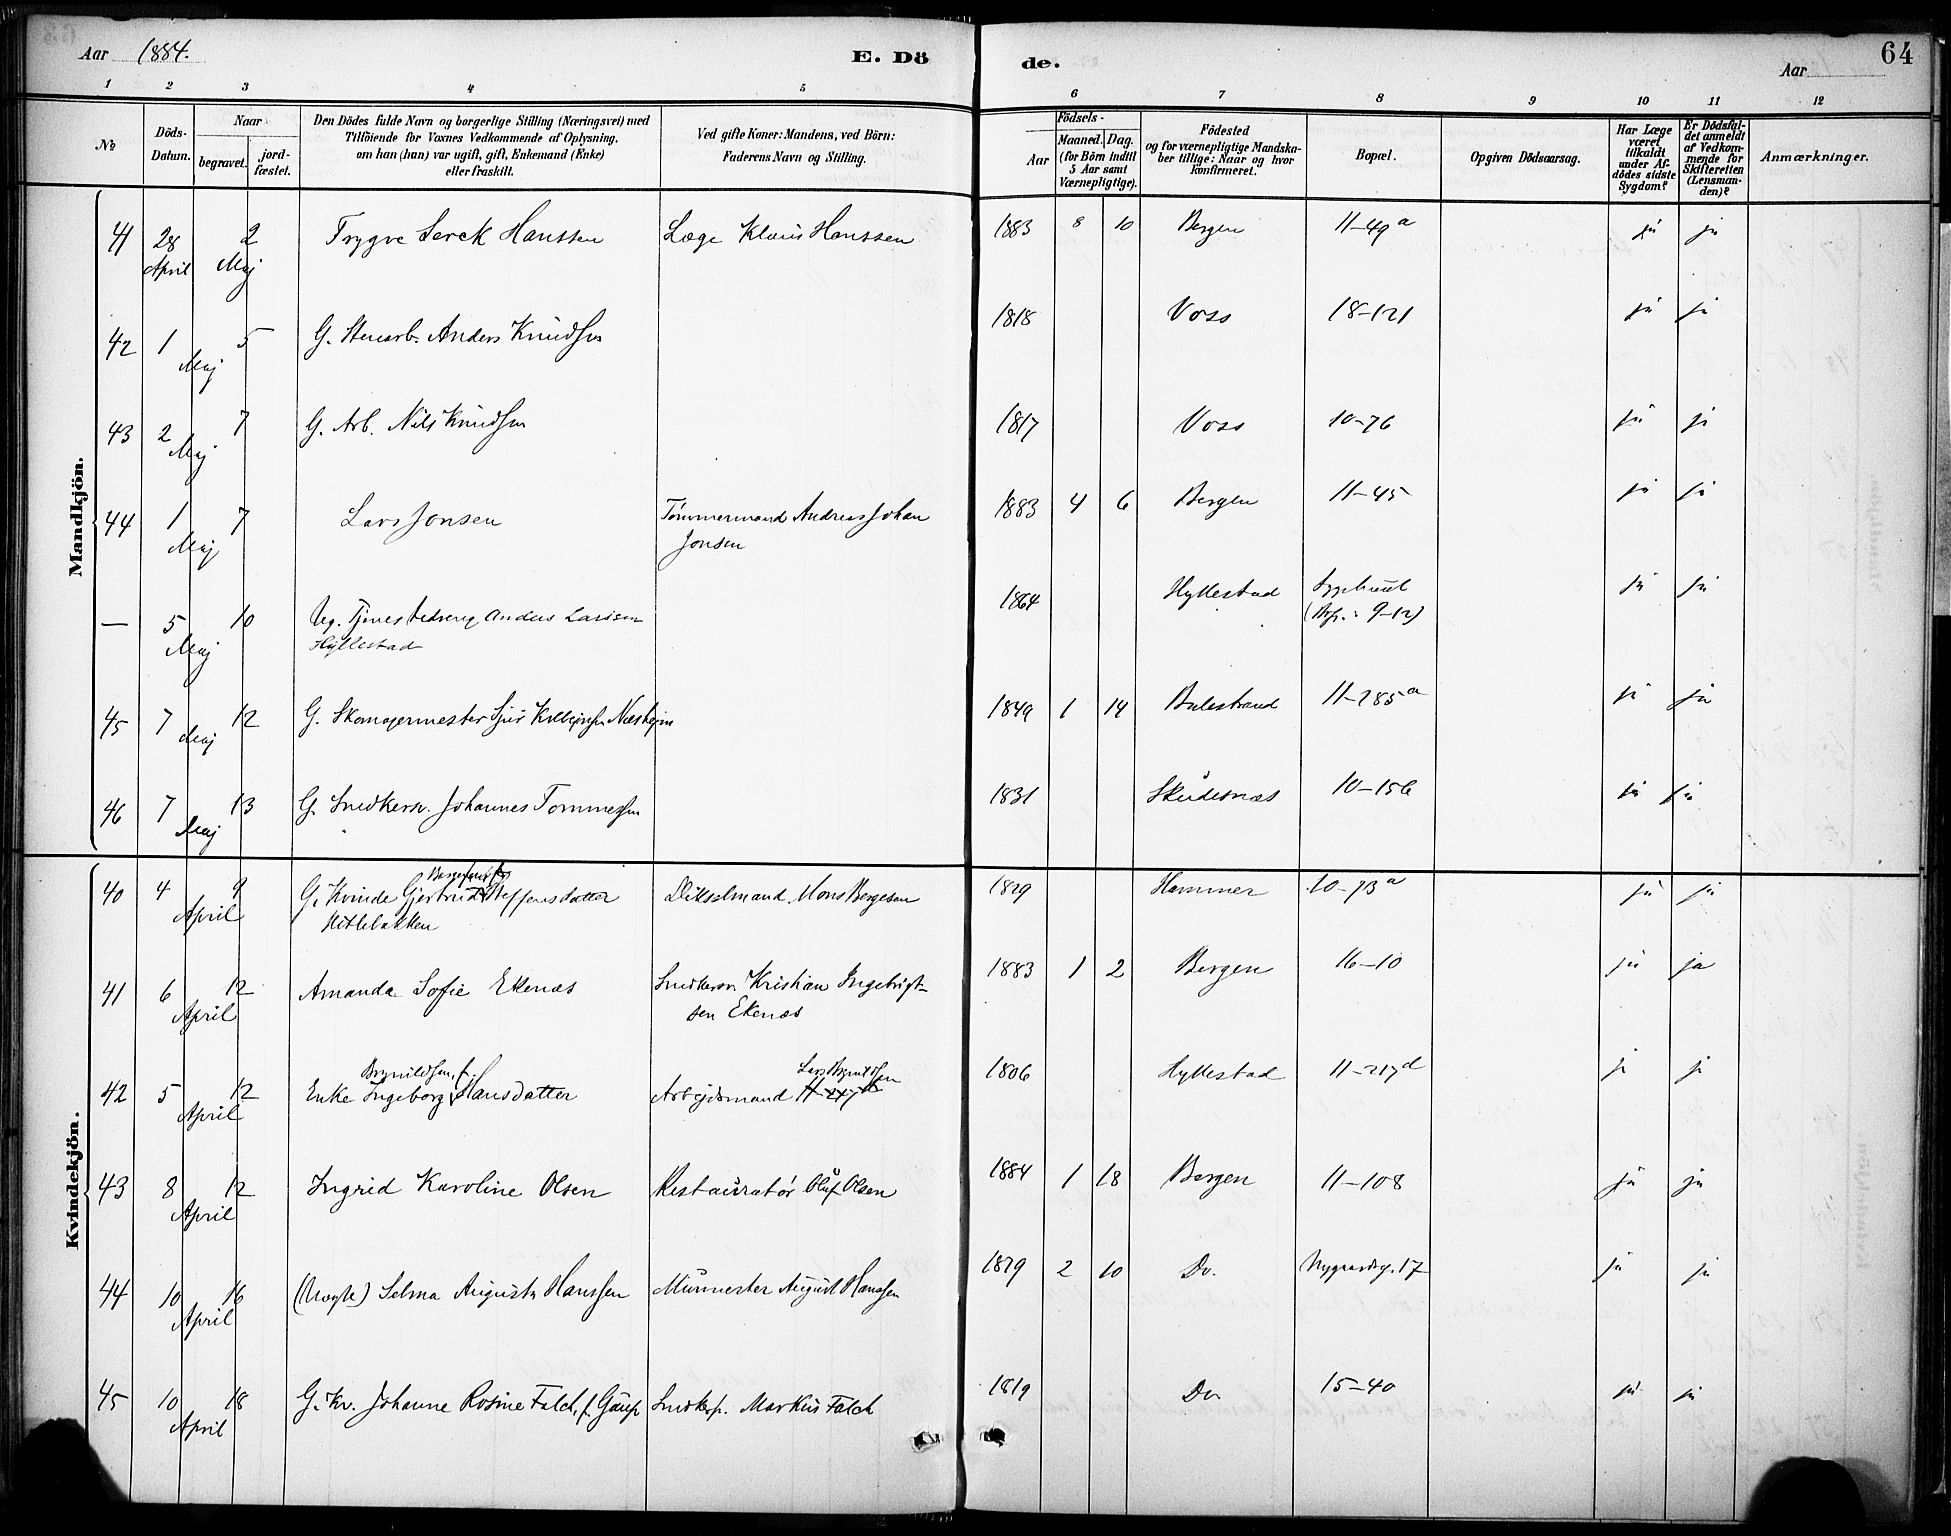 Aar 1884.
E. Döde.
Aar
64
1 2 3 4 5 6 7 8 9 10 11 12
№
Döds-Datum.
Naar
begravet.
jord-fæstet.
Den Dödes fulde Navn og borgerlige Stilling (Næringsvei) med
Tilföiende for Voxnes Vedkommende af Oplysning,
om han (hun) var ugift, gift, Enkemand (Enke)
eller fraskilt.
Ved gifte Koner: Mandens, ved Börn:
Faderens Navn og Stilling.
Födsels-
Aar
Maaned.
Dag.
(for Börn indtil
5 Aar samt
Værnepligtige).
Födested
og for værnepligtige Mandska-
ber tillige: Naar og hvor
konfirmeret.
Bopæl.
Opgiven Dödsaarsag.
Har Læge
været
tilkaldt
under Af-
dödes sidste
Sygdom?
Er Dödsfal-
det anmeldt
af Vedkom-
mende for
Skifteretten
(Lensman-
den)?
Anmærkninger.
Mandkjön.
41 28 April 2 Maj Trygve Serck Hanssen Læge Klaus Hanssen 1883 8 10 Bergen 11-49a ja ja
42 1 Maj 5 G. Stenarb. Anders Knudsen 1818 Voss 18-121 ja ja
43 2 Maj 7 G. Arb. Nils Knudsen 1817 Voss 10-76 ja ja
44 1 Maj 7 Lars Jonsen Tømmermand Andreas Johan
Jonsen 1883 4 6 Bergen 11-45 ja ja
— 5 Maj 10 Ug. Tjenestedreng Anders Larsen
Hyllestad 1864 Hyllestad Sygehuset
9-12) ja ja
45 7 Maj 12 G. Skomagermester Sjur Næshejm 1849 1 14 Balestrand 11-285a ja ja
46 7 Maj 13 G. Snedkersv. Johannes Tommessen 1831 Skudesnæs 10-156 ja ja
Kvindekjön.
40 4 April 9 G. Kvinde Gjertrud Steffensdatter
Hitlebakken Mons Bergesen 1829 Hammer 10-73a ja ja
41 6 April 12 Amanda Sofie Ekenæs Snedkersv. Kristian Ingebrigt-
sen Ekenæs 1883 1 2 Bergen 16-10 ja ja
42 5 April 12 Brynildsen, f.
Enke Ingeborg Hansdatter Lars Brynildsen
Arbejdsmand 1806 Hyllestad 11-217d ja ja
43 8 April 12 Ingrid Karoline Olsen Restauratør Oluf Olsen 1884 1 18 Bergen 11-108 ja ja
44 10 April 16 Selma Augusta Hanssen Murmester August Hanssen 1879 2 10 Do. Nygaardsg. 17 ja ja
45 10 April 18 G. Kv. Johanne Rosine Falch, f. Gaup Snedker. Markus Falch 1819 Do. 15-40 ja ja